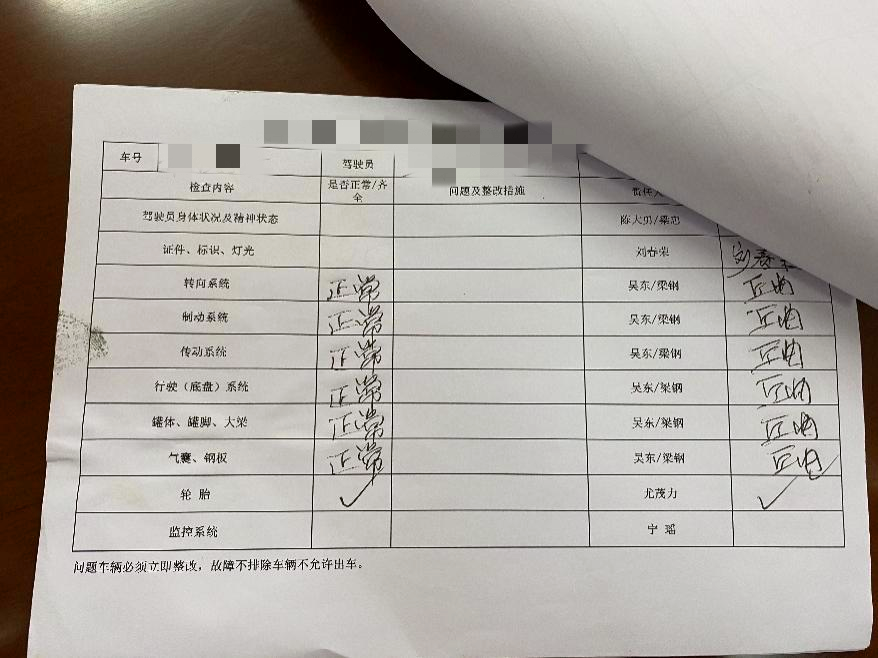 车号 驾驶员
检查内容 是否正常/齐全 问题及整改措施 责任人
驾驶员身体状况及精神状态 陈大勇/梁忠
证件、标识、灯光 刘春荣 刘春荣
转向系统 正常 吴东/梁钢
制动系统 正常 吴东/梁钢
传动系统 正常 吴东/梁钢
行驶（底盘）系统 正常 吴东/梁钢
罐体、罐脚、大梁 正常 吴东/梁钢
气囊、钢板 正常 吴东/梁钢
轮 胎 ✓ 尤茂力 ✓
监控系统 宁 瑶
问题车辆必须立即整改，故障不排除车辆不允许出车。